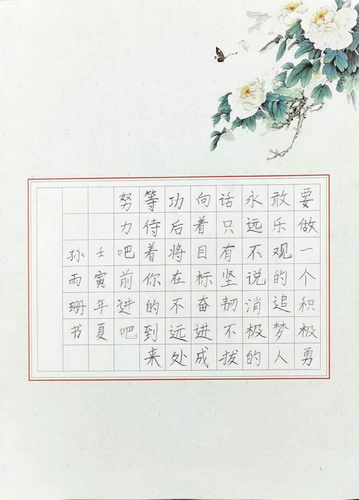 要做一个积极勇
敢乐观的追梦人
永远不说消极的
话只有坚韧不拔
向着目标奋进成
功后将在不远处
等侍着你的到来
努力吧前进吧
壬寅年夏
孙雨珊书